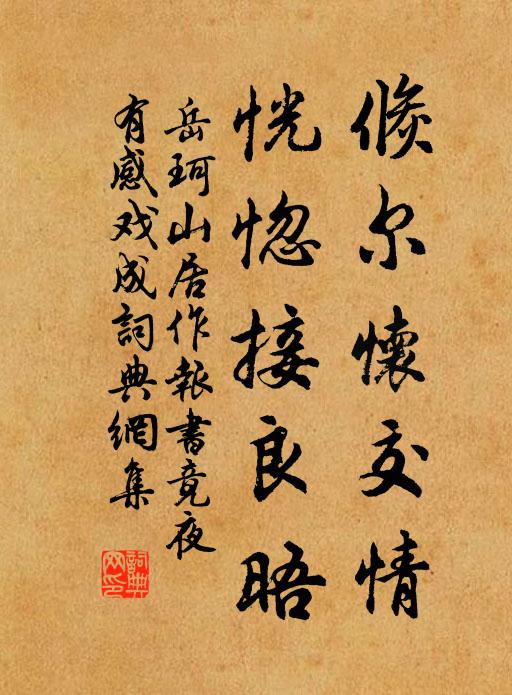 倏尔懷交情
恍惚接良晤
岳珂山居作報書竟夜
有感戏成詞典網集
詞典網印